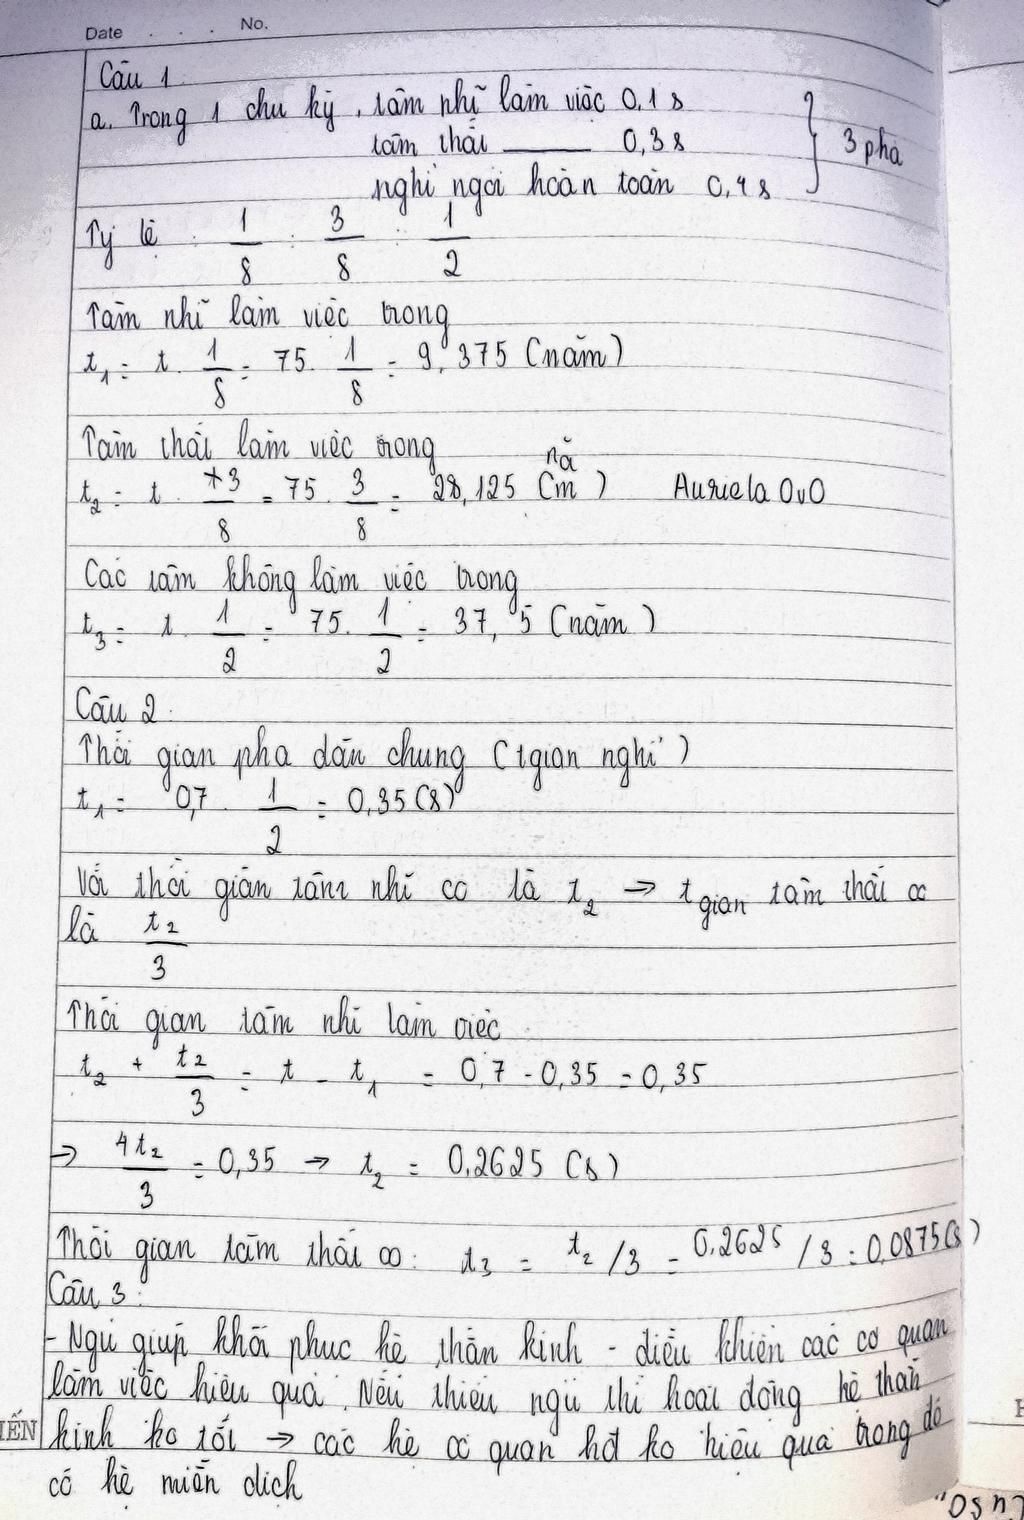 Date . . . No.
Câu 1
a. Trong 1 chu kỳ, tâm nhĩ làm việc 0,1s
tâm thất ——— 0,3s } 3 pha
nghỉ ngơi hoàn toàn 0,4s
Tỷ lệ : 1/8 : 3/8 : 1/2
Tâm nhĩ làm việc trong
t₁ = t . 1/8 = 75 . 1/8 = 9,375 (năm)
Tâm thất làm việc trong
t₂ = t . 3/8 = 75 . 3/8 = 28,125 (năm) Auriela OvO
Các tâm không làm việc trong
t₃ = t . 1/2 = 75 . 1/2 = 37,5 (năm)
Câu 2:
Thời gian pha dãn chung (tgian nghỉ)
t₁ = 0,7 . 1/2 = 0,35 (s)
Với thời gian tâm nhĩ co là t₂ → t gian tâm thất co
là t₂/3
Thời gian tâm nhĩ làm việc
t₂ + t₂/3 = t - t₁ = 0,7 - 0,35 = 0,35
→ 4t₂/3 = 0,35 → t₂ = 0,2625 (s)
Thời gian tâm thất co: t₃ = t₂/3 = 0,2625/3 = 0,0875(s)
Câu 3:
- Ngủ giúp khôi phục hệ thần kinh - điều khiển các cơ quan
làm việc hiệu quả. Nếu thiếu ngủ thì hoạt động hệ thần
kinh ko tốt → các hệ cơ quan hđ ko hiệu quả trong đó
có hệ miễn dịch
IẾN